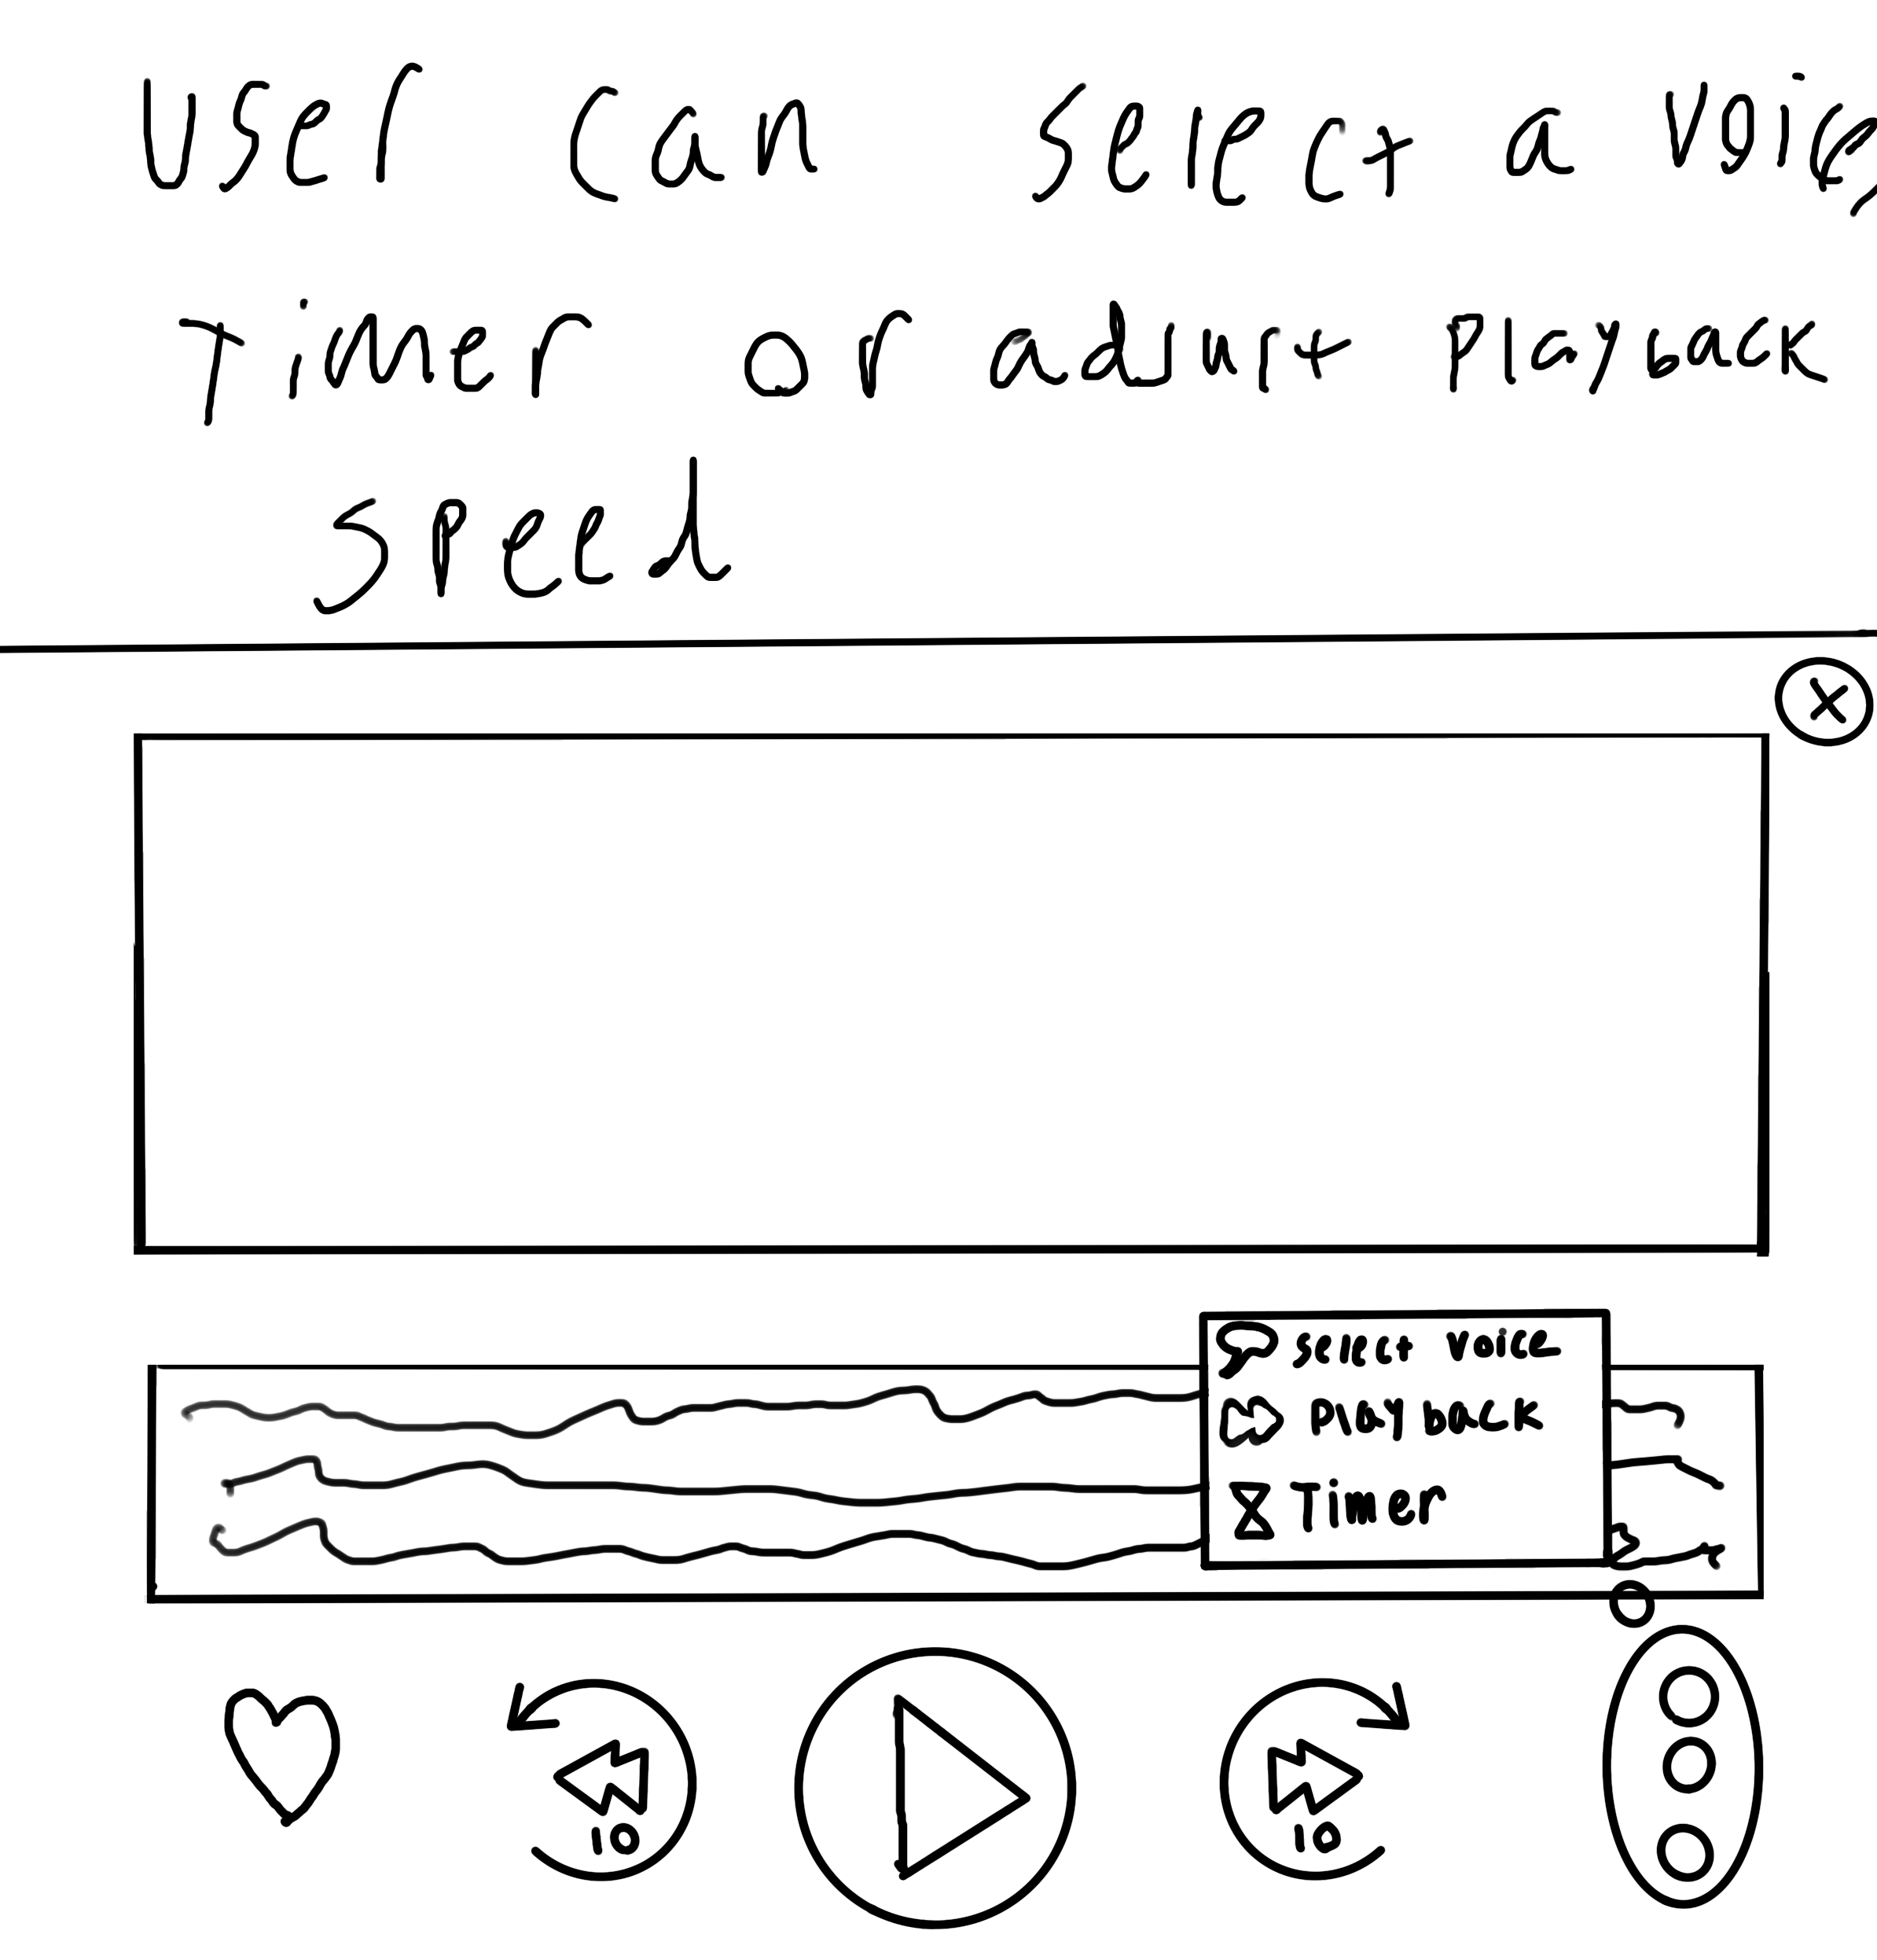 user can select a voice,
Timer or adJust Playback
speed
select voice
playback
Timer
10 10